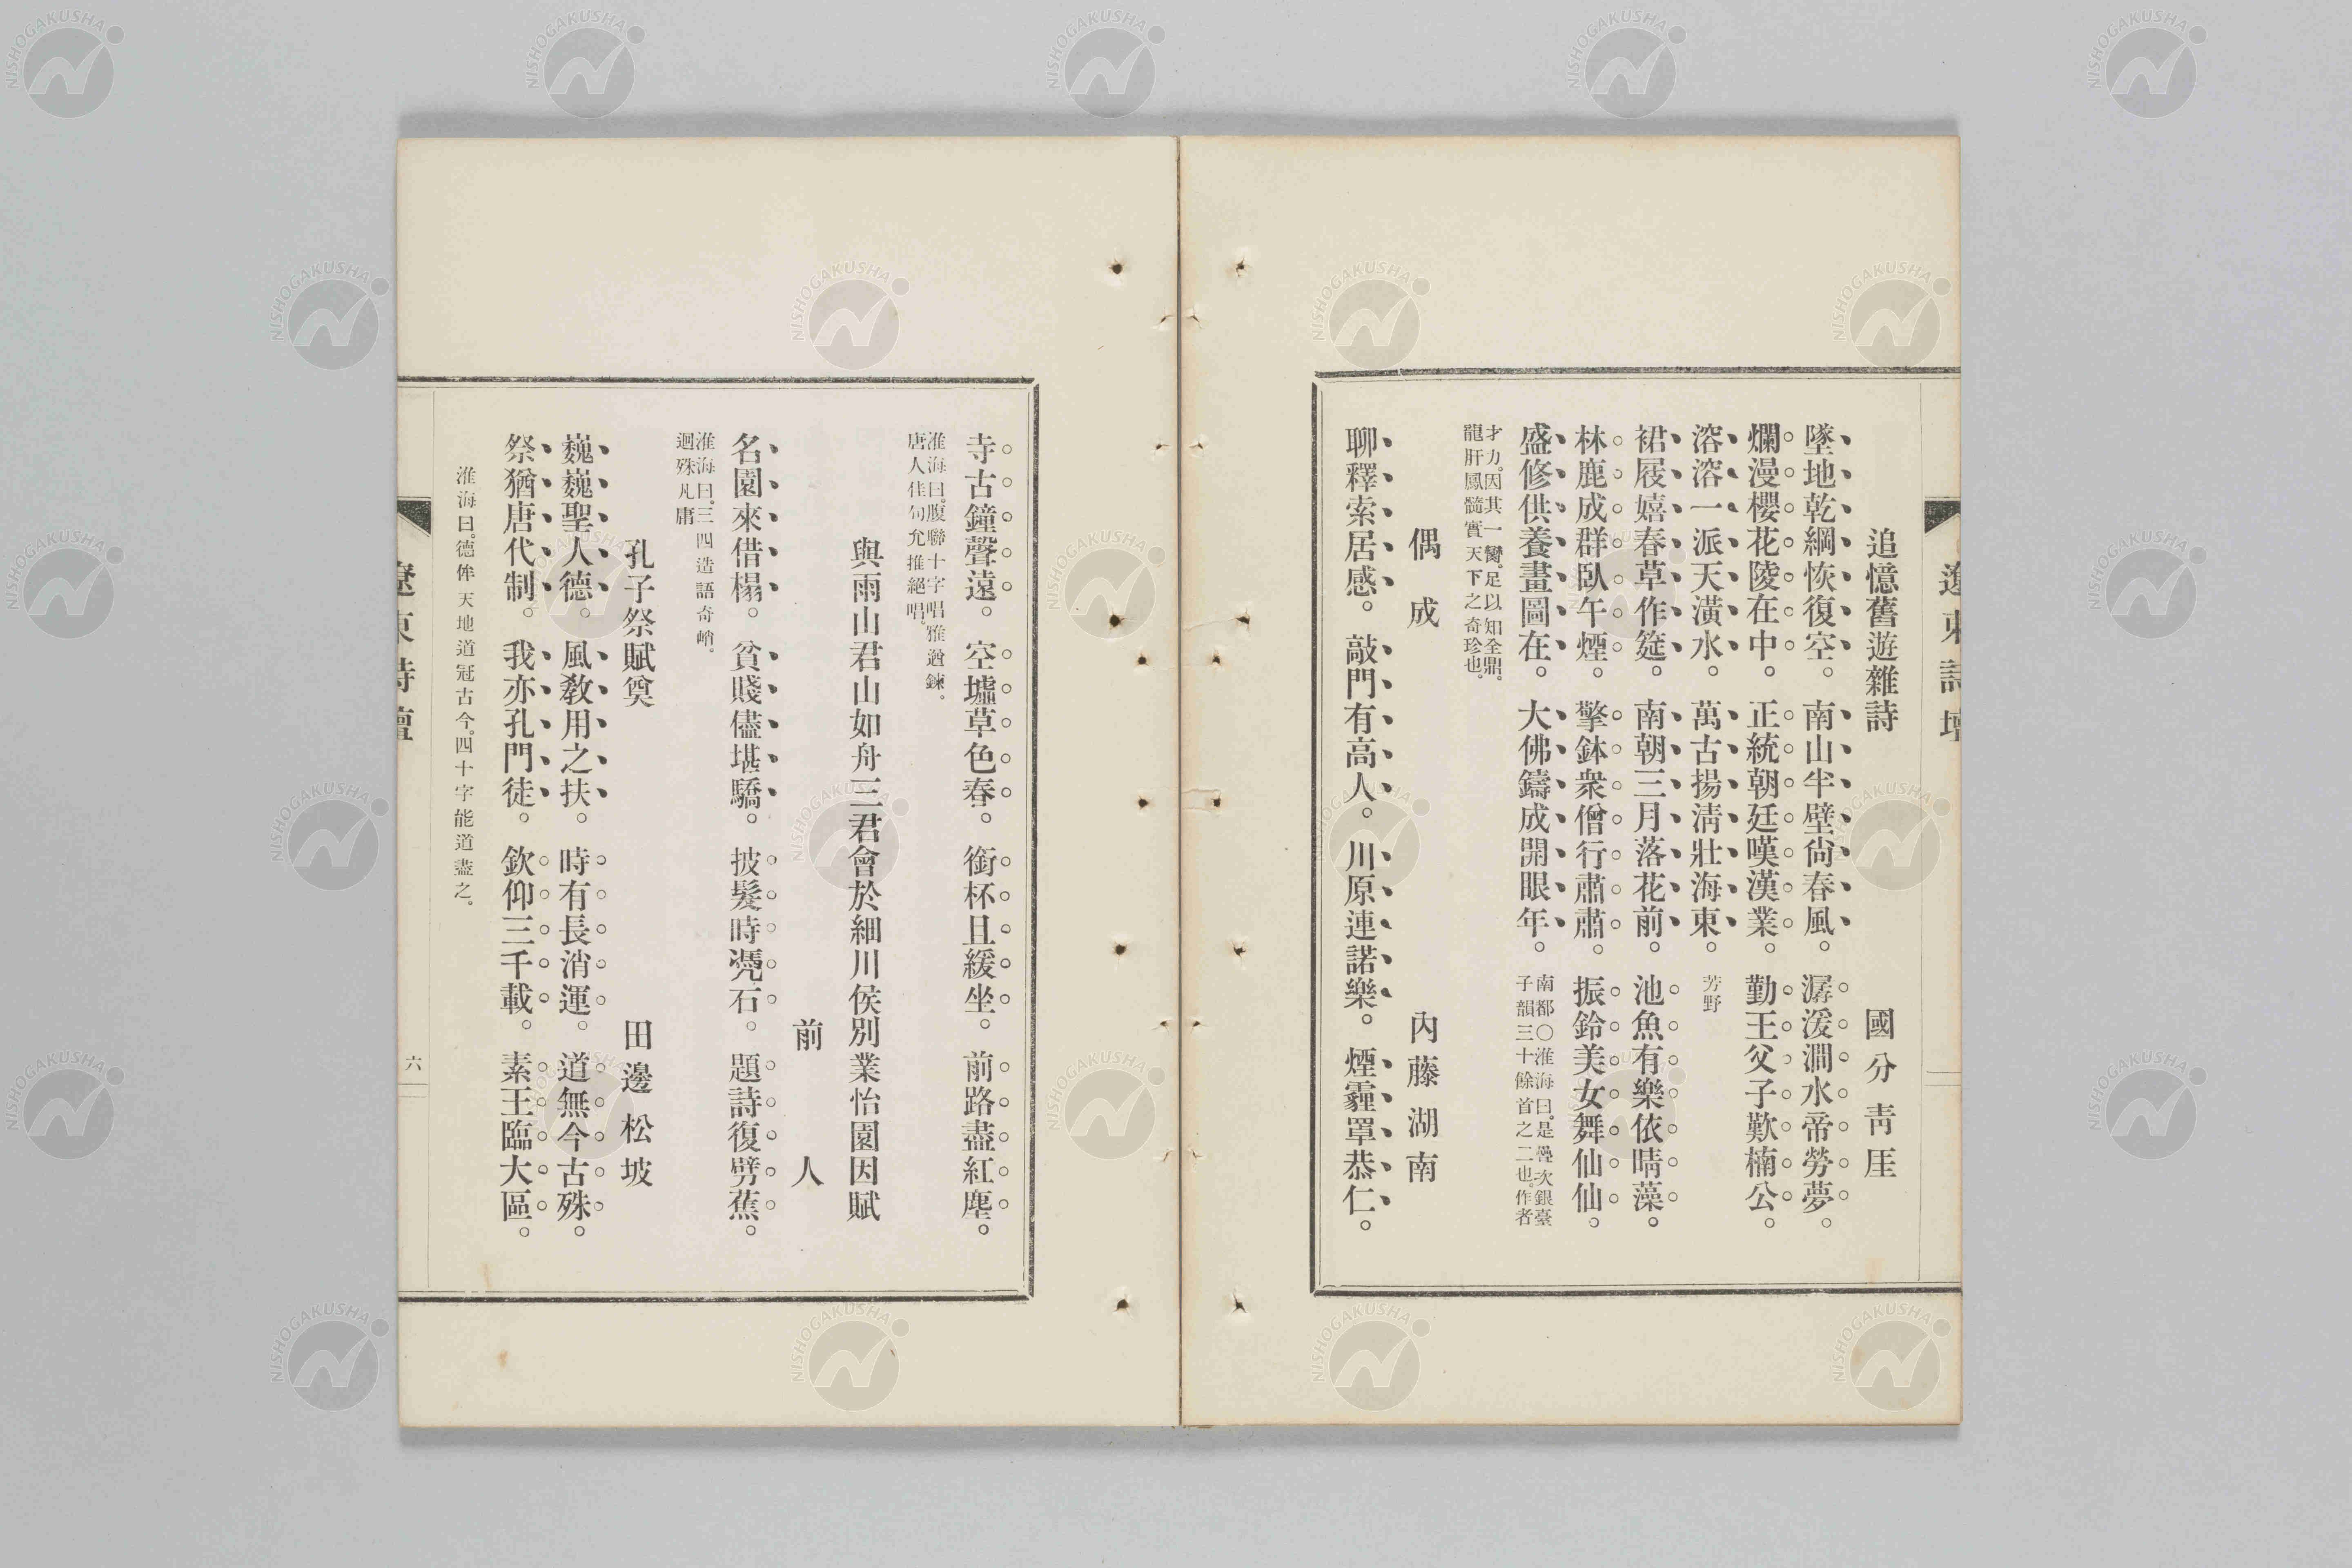 遼東詩壇
追憶舊遊雜詩　國分靑厓
墜地乾綱恢復空。南山半壁尙春風。潺湲澗水帝勞夢。
爛漫櫻花陵在中。正統朝廷嘆漢業。勤王父子歎楠公。
溶溶一派天潢水。萬古揚淸壯海東。芳野
裙屐嬉春草作筵。南朝三月落花前。池魚有樂依晴藻。
林鹿成群臥午煙。擎鉢衆僧行肅肅。振鈴美女舞仙仙。
盛修供養畫圖在。大佛鑄成開眼年。南都○淮海曰。是疊次銀臺
子韻三十餘首之二也。作者
才力。因其一臠。足以知全鼎。
龍肝鳳髓實天下之奇珍也。
偶成　內藤湖南
聊釋索居感。敲門有高人。川原連諾樂。煙霾罩恭仁。
寺古鐘聲遠。空墟草色春。銜杯且緩坐。前路盡紅塵。
淮海曰。腹聯十字唱雅遒鍊。
唐人佳句允推絕唱。
與雨山君山如舟三君會於細川侯別業怡園因賦
前人
名園來借榻。貧賤儘堪驕。披髮時凭石。題詩復劈蕉。
淮海曰。三四造語奇峭。
迥殊凡庸
孔子祭賦奠　田邊松坡
巍巍聖人德。風教用之扶。時有長消運。道無今古殊。
祭猶唐代制。我亦孔門徒。欽仰三千載。素王臨大區。
淮海曰。德侔天地道冠古今。四十字能道盡之。
遼東詩壇
六
NISHOGAKUSHA